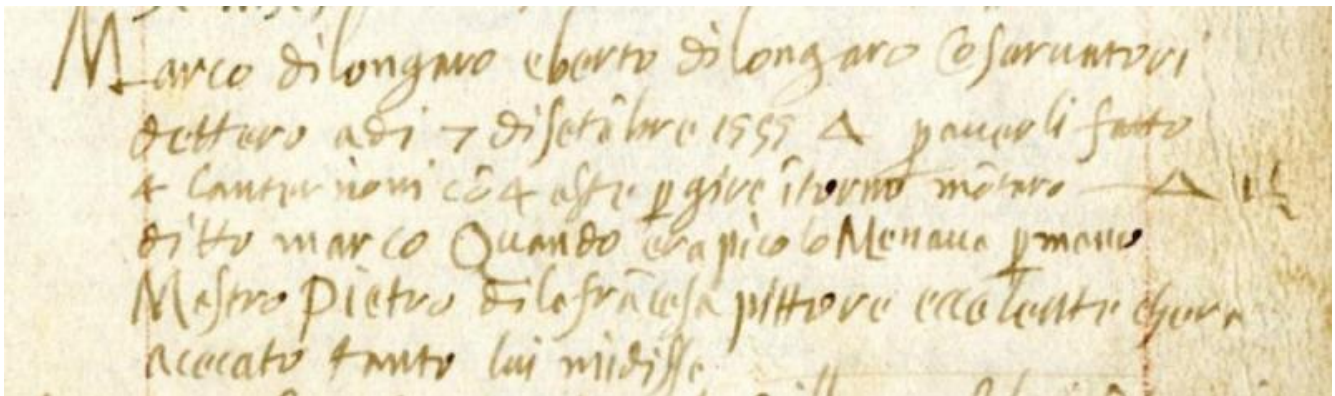 Marco dilongaro eberto dilongaro Cōseruatori
dettero adi 7 disetēbre 1555 Δ p auerli fatto
4 lanternoni cō 4 aste p gire ītorno mōtaro Δ
ditto marco Quando era picolo Menaua p mano
Mastro Pietro dilafrācesca pittore eccelente chera
acecato tanto lui midisse